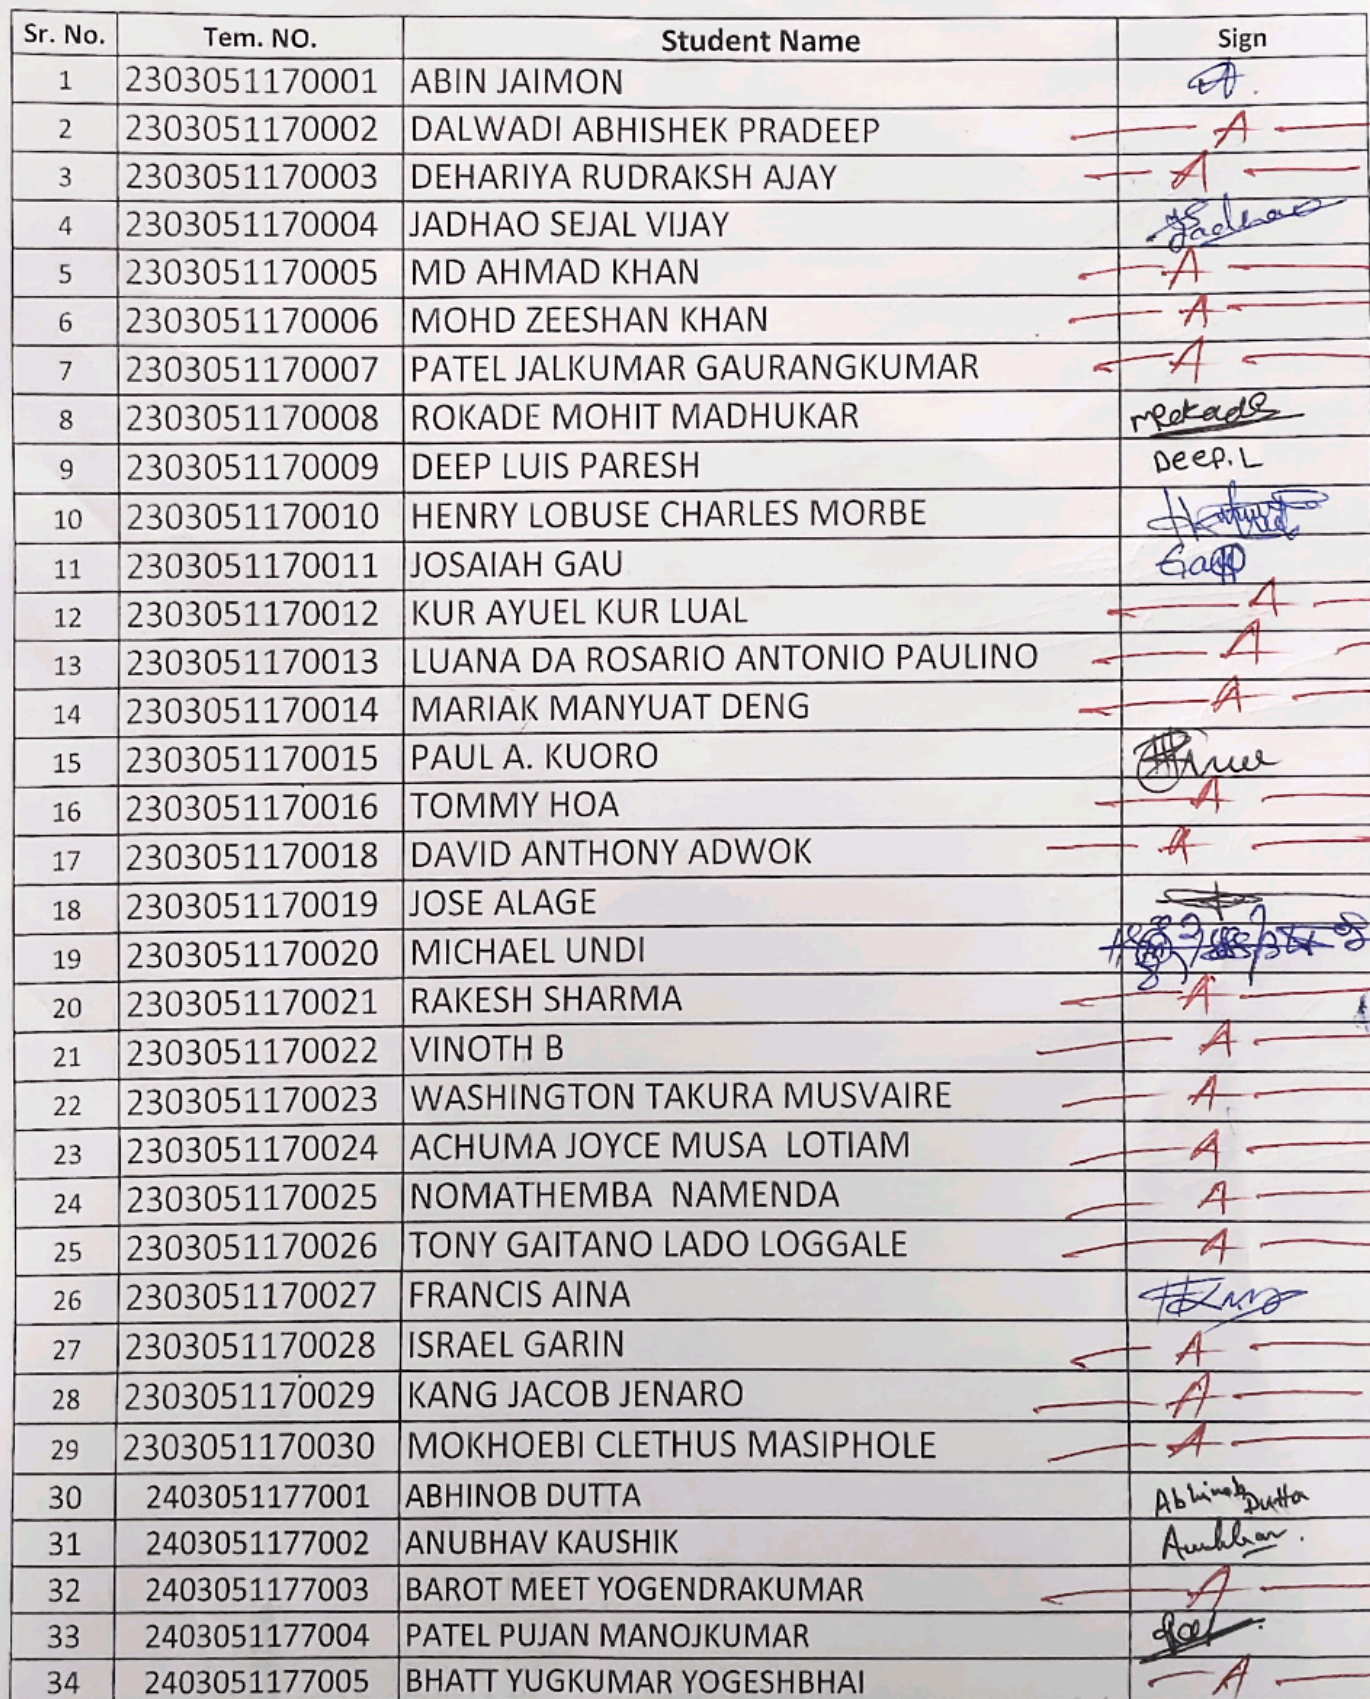 Sr. No. Tem. NO. Student Name Sign
1 2303051170001 ABIN JAIMON
2 2303051170002 DALWADI ABHISHEK PRADEEP A
3 2303051170003 DEHARIYA RUDRAKSH AJAY A
4 2303051170004 JADHAO SEJAL VIJAY Jadhao
5 2303051170005 MD AHMAD KHAN A
6 2303051170006 MOHD ZEESHAN KHAN A
7 2303051170007 PATEL JALKUMAR GAURANGKUMAR A
8 2303051170008 ROKADE MOHIT MADHUKAR
9 2303051170009 DEEP LUIS PARESH Deep.L
10 2303051170010 HENRY LOBUSE CHARLES MORBE
11 2303051170011 JOSAIAH GAU
12 2303051170012 KUR AYUEL KUR LUAL A
13 2303051170013 LUANA DA ROSARIO ANTONIO PAULINO A
14 2303051170014 MARIAK MANYUAT DENG A
15 2303051170015 PAUL A. KUORO
16 2303051170016 TOMMY HOA A
17 2303051170018 DAVID ANTHONY ADWOK A
18 2303051170019 JOSE ALAGE
19 2303051170020 MICHAEL UNDI
20 2303051170021 RAKESH SHARMA A
21 2303051170022 VINOTH B A
22 2303051170023 WASHINGTON TAKURA MUSVAIRE A
23 2303051170024 ACHUMA JOYCE MUSA LOTIAM A
24 2303051170025 NOMATHEMBA NAMENDA A
25 2303051170026 TONY GAITANO LADO LOGGALE A
26 2303051170027 FRANCIS AINA
27 2303051170028 ISRAEL GARIN A
28 2303051170029 KANG JACOB JENARO A
29 2303051170030 MOKHOEBI CLETHUS MASIPHOLE A
30 2403051177001 ABHINOB DUTTA Abhinob Dutta
31 2403051177002 ANUBHAV KAUSHIK
32 2403051177003 BAROT MEET YOGENDRAKUMAR A
33 2403051177004 PATEL PUJAN MANOJKUMAR
34 2403051177005 BHATT YUGKUMAR YOGESHBHAI A